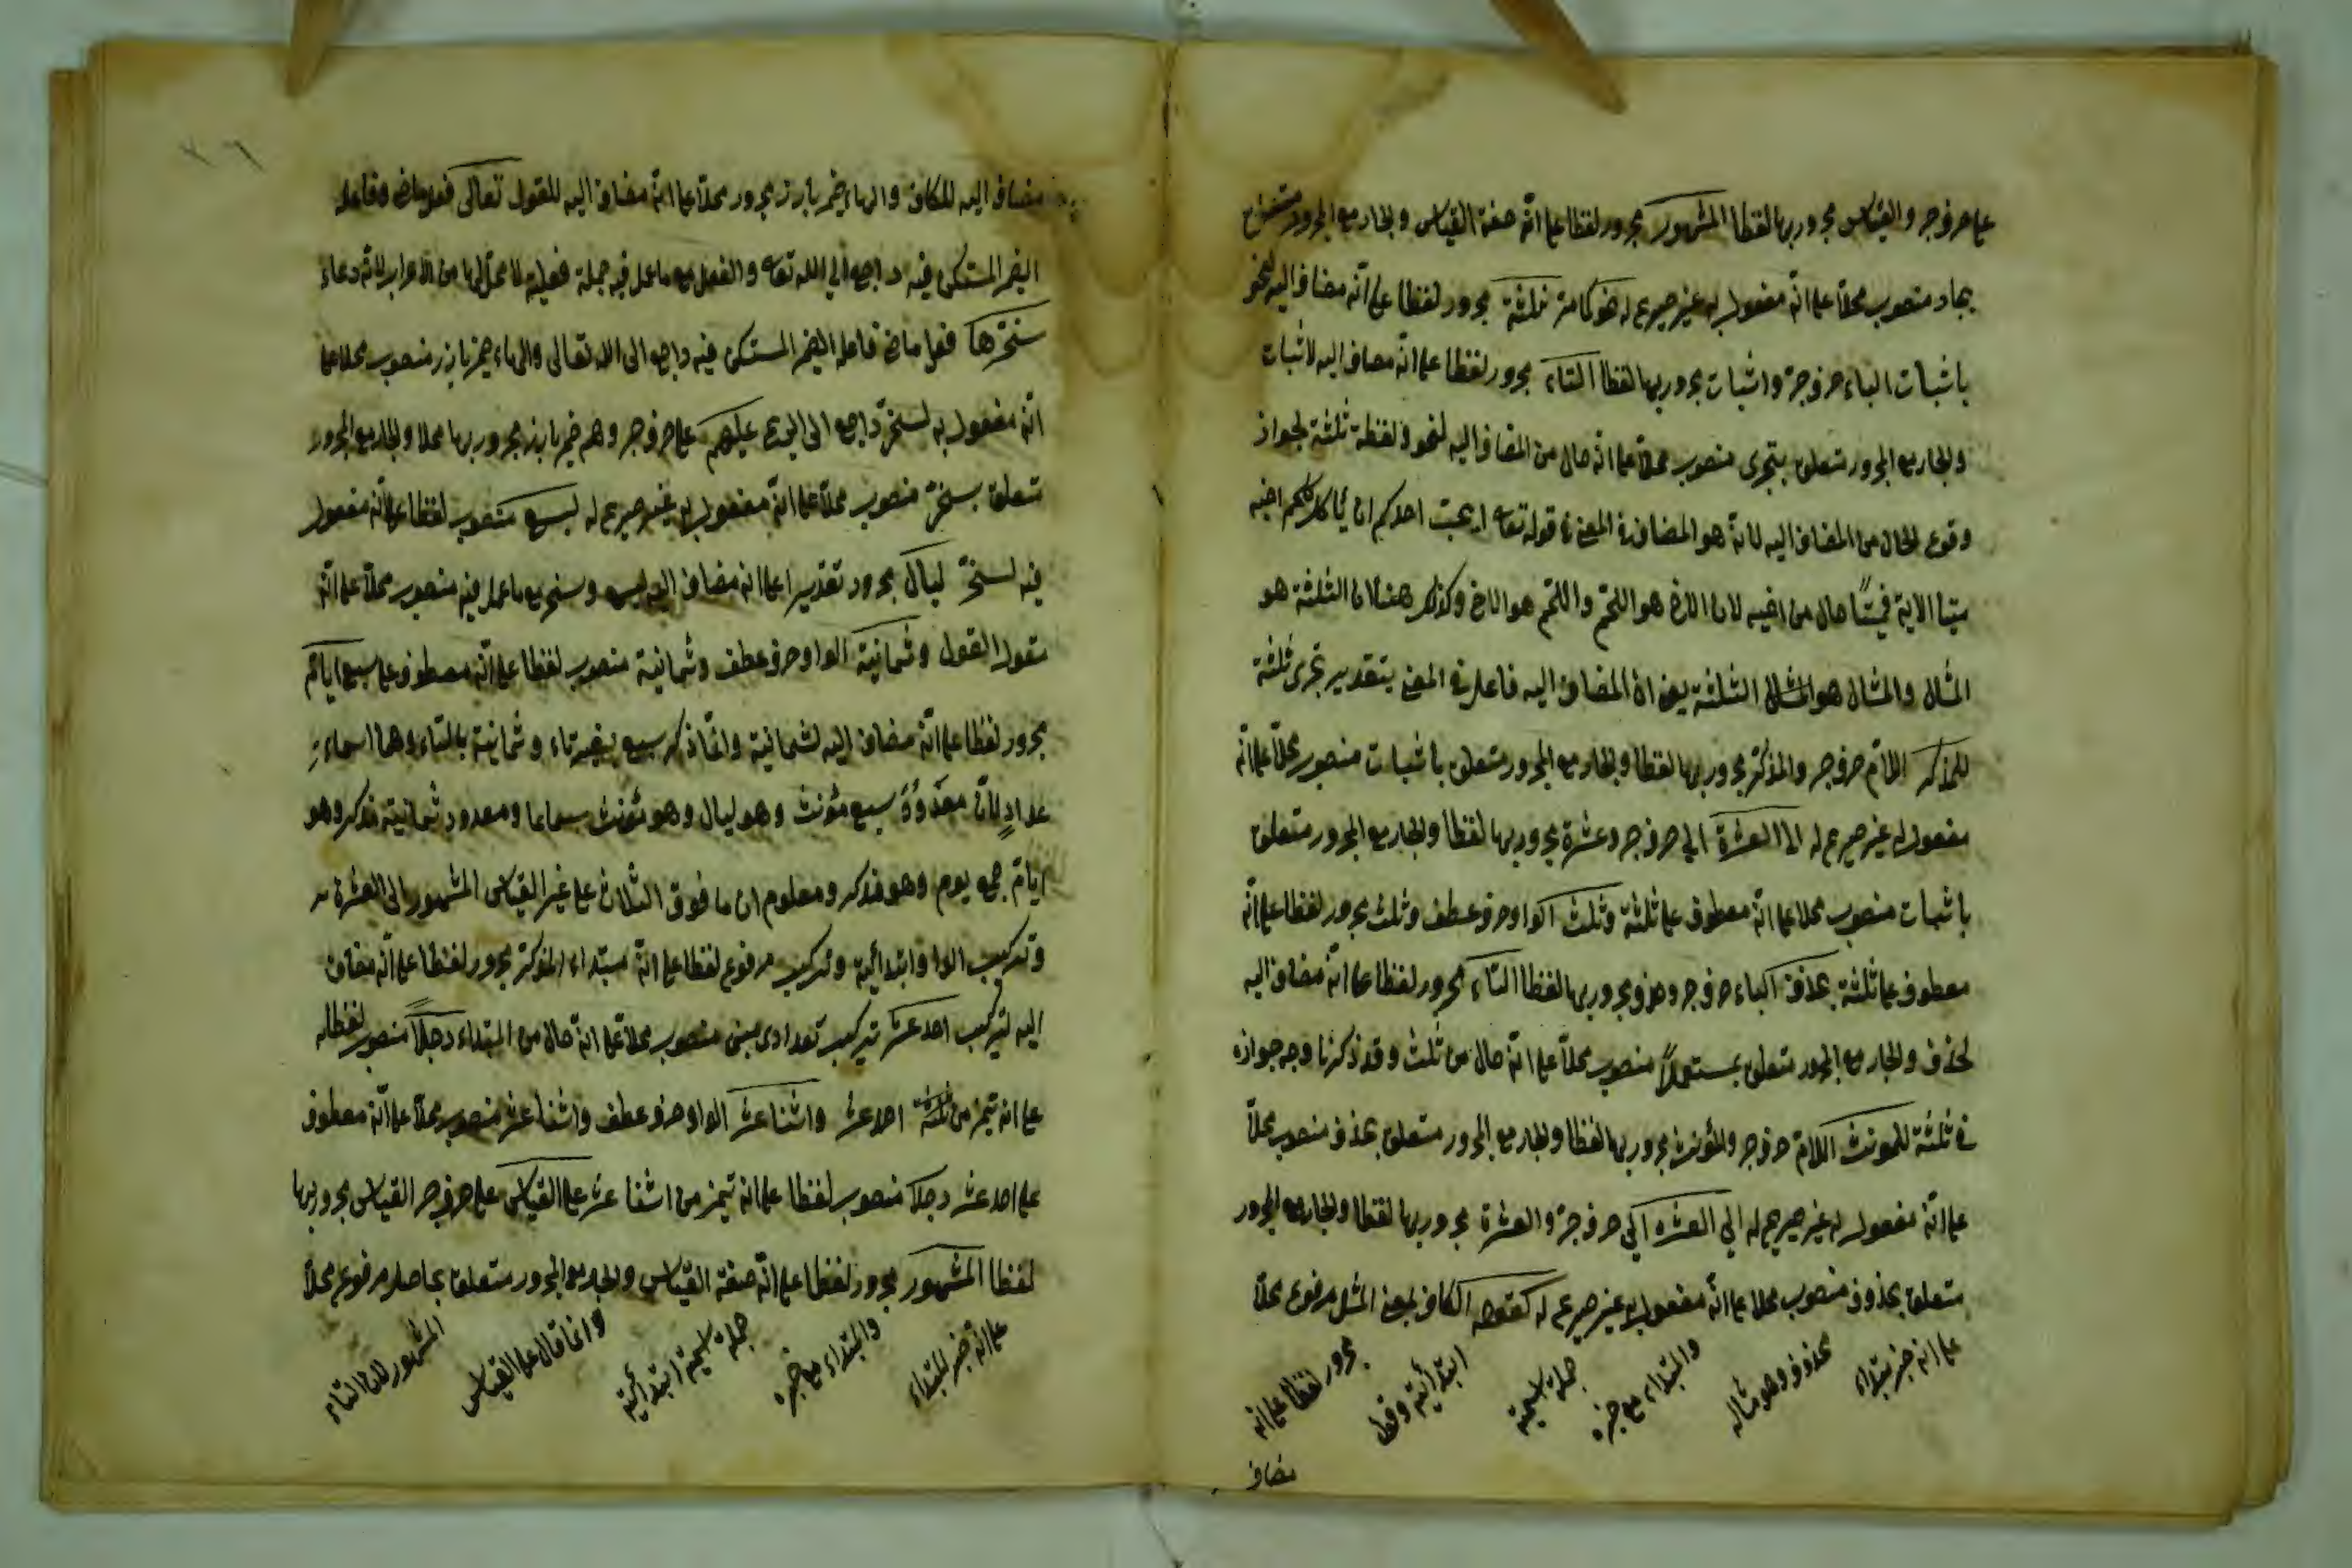 على حرف جر والقياس مجرور بها لفظا المشهور مجرور لفظا على انه صفة القياس والجار مع المجرور
بجار منصوب محلا على انه مفعول به غير صريح له نحو كامر ثلثة مجرور لفظا على انه مضاف اليه لنحو
باثبات الباء حرف جر واثبات مجرور بها لفظا التاء مجرور لفظا على انه مضاف اليه لاثبات
والجار مع المجرور متعلق بتجرى منصوب محلا على انه حال من المضاف اليه لنحو ولفظة ثلثة لجواز
وقوع الحال من المضاف اليه لانه هو المضاف في المعنى في قوله تعا ايحب احدكم ان يأكل لحم اخيه
ميتا الاية فميتًا حال من اخيه لان الاخ هو اللحم واللحم هو الاخ وكذلك هنا لان الثلثة هو
المثال والمثال هو الثلثة يعنى ان المضاف اليه فاعل في المعنى بتقدير تجرى ثلثة
للمذكر اللام حرف جر والمذكر مجرور بها لفظا والجار مع المجرور متعلق باثبات منصوب محلا على انه
مفعول به غير صريح له الى العشرة الى حرف جر وعشرة مجرور بها لفظا والجار مع المجرور متعلق
باثبات منصوب محلا على انه معطوف على ثلثة وثلث الواو حرف عطف وثلث مجرور لفظا على انه
معطوف على ثلثة بحذف الباء حرف جر وحذف مجرور بها لفظا التاء مجرور لفظا على انه مضاف اليه
لحذف والجار مع المجرور متعلق بمستعملاً منصوب محلا على انه حال من ثلث وقد ذكرنا وجه جوازه
في ثلثة للمونث اللام حرف جر والمؤنث مجرور بها لفظا والجار مع المجرور متعلق بحذف منصوب محلا
على انه مفعول به غير صريح له الى العشرة الى حرف جر والعشرة مجرور بها لفظا والجار مع المجرور
متعلق بحذف منصوب محلا على انه مفعول به غير صريح له كقوله الكاف بمعنى المثل مرفوع محلا
على انه خبر مبتداء محذوف وهو مثاله والمبتداء مع خبره جملة اسمية ابتدائية وقول مجرور لفظا على انه
مضاف
مضاف اليه للكاف والهاء ضمير بارز مجرور محلا على انه مضاف اليه للقول تعالى فعل ماض وفاعله
الضمير المستكن فيه راجع الى الله تعا والفعل مع ما عمل فيه جملة فعلية لا محل لها من الاعراب لانه دعاء
سخرها فعل ماض فاعله الضمير المستكن فيه راجع الى الله تعالى والهاء ضمير بارز منصوب محلا على
انه مفعول به لسخر راجع الى الريح عليهم على حرف جر وهم ضمير بارز مجرور بها محلا والجار مع المجرور
متعلق بسخر منصوب محلا على انه مفعول به غير صريح له سبع منصوب لفظا على انه مفعول
فيه لسخر ليال مجرور تقديرا على انه مضاف اليه لسبع وسخر مع ما عمل فيه منصوب محلا على انه
مقول القول وثمانية الواو حرف عطف وثمانية منصوب لفظا على انه معطوف على سبع ايام
مجرور لفظا على انه مضاف اليه لثمانية وانما ذكر سبع بغير تاء وثمانية بالتاء وهما اسماء
عداد لان معدود سبع مؤنث وهو ليال وهو مؤنث سماعا ومعدود ثمانية مذكر وهو
ايام جمع يوم وهو مذكر ومعلوم ان ما فوق الثلاث على غير القياس المشهور الى العشرة
وتركيب الواو ابتدائية وتركيب مرفوع لفظا على انه مبتداء المذكر مجرور لفظا على انه مضاف
اليه لتركيب احد عشر تركيب تعدادى مبنى منصوب محلا على انه حال من المبتداء رجلاً منصوب لفظا
على انه تميز من احد عشر واثنا عشر الواو حرف عطف واثنا عشر منصوب محلا على انه معطوف
على احد عشر رجلا منصوب لفظا على انه تميز من اثنا عشر على القياس على حرف جر القياس مجرور بها
لفظا المشهور مجرور لفظا على انه صفة القياس والجار مع المجرور متعلق بحاصل مرفوع محلا
على انه خبر للمبتداء والمبتداء مع خبره جملة اسمية ابتدائية وانما قال على القياس المشهور لان التاء